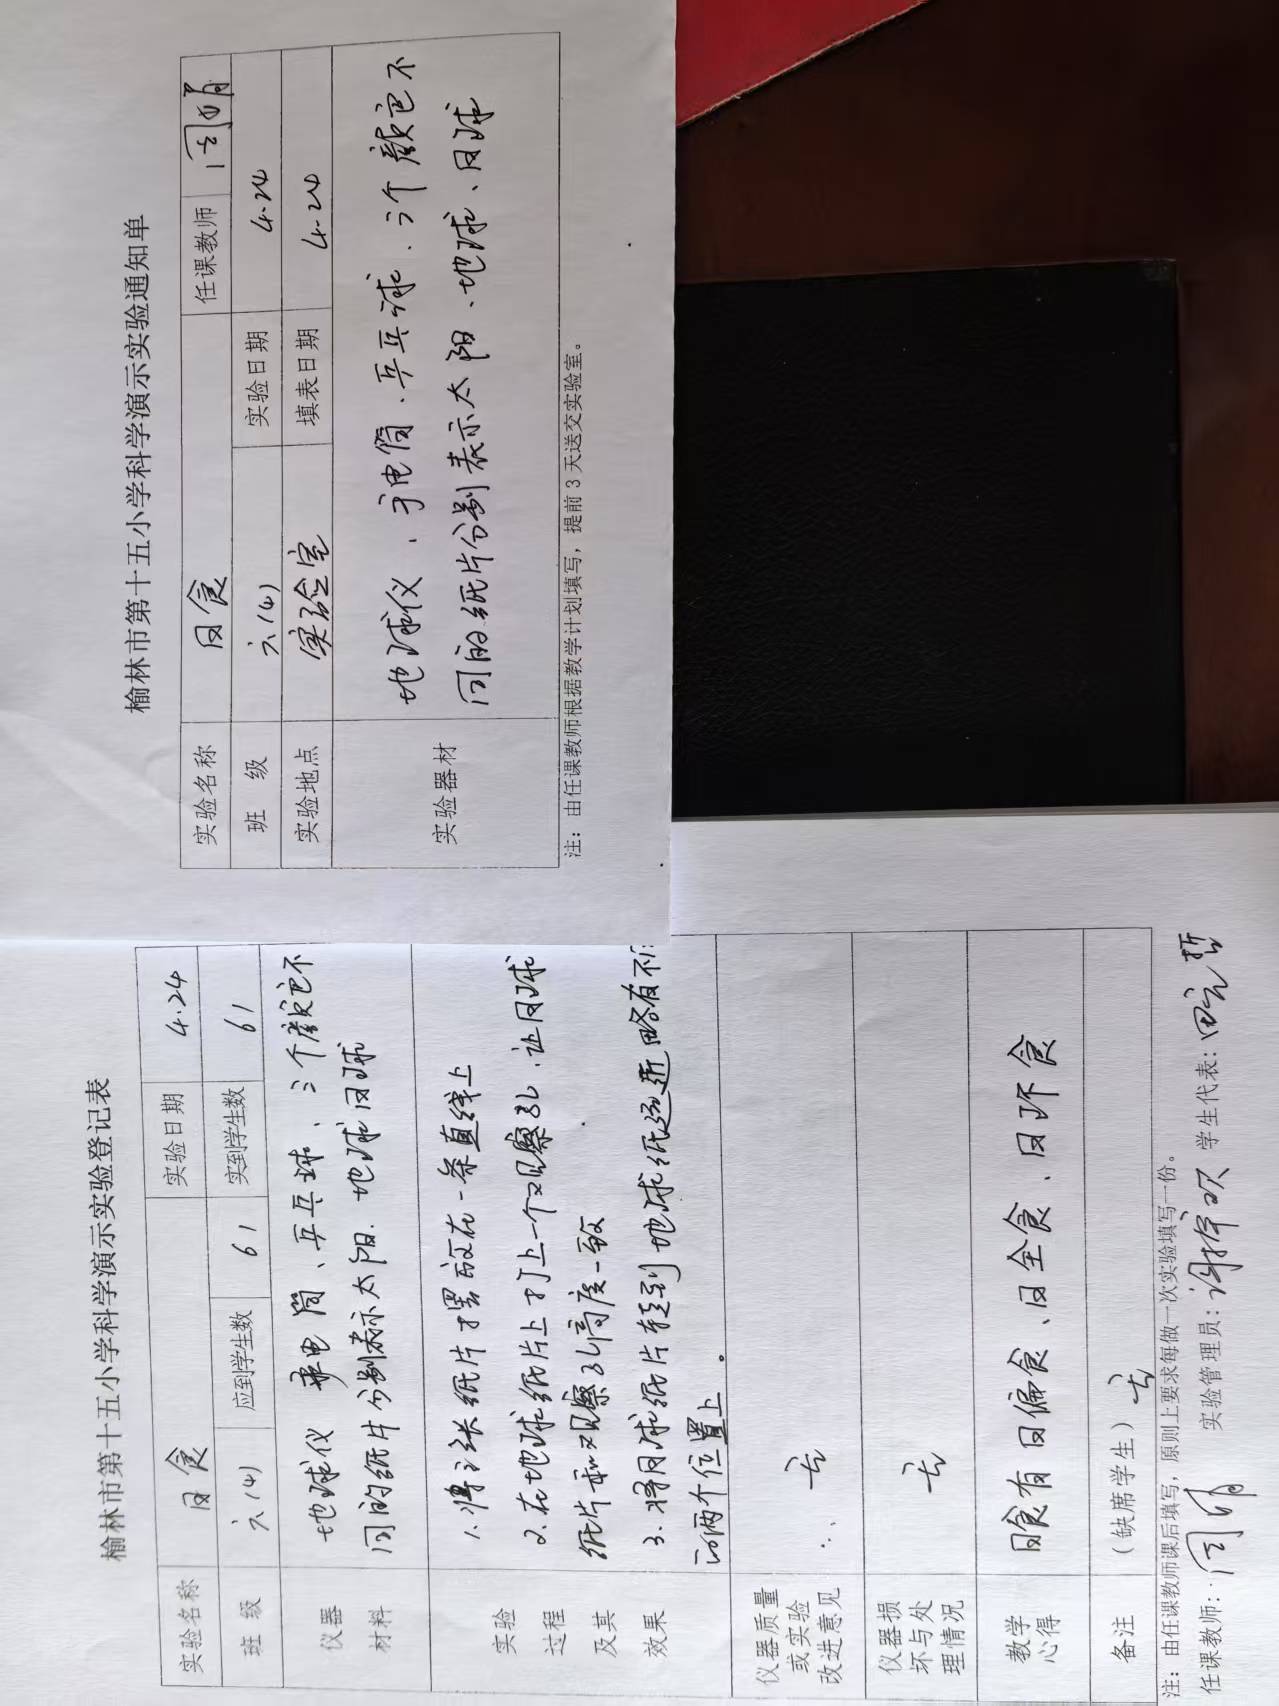 榆林市第十五小学科学演示实验通知单
实验名称 日食 任课教师 闫娟
班 级 六(4) 实验日期 4.24
实验地点 实验室 填表日期 4.24
实验器材
地球仪、手电筒、乒乓球、三个颜色不
同的纸片分别表示太阳、地球、月球
注：由任课教师根据教学计划填写，提前 3 天送交实验室。
榆林市第十五小学科学演示实验登记表
实验名称 日食 实验日期 4.24
班 级 六(4) 应到学生数 61 实到学生数 61
仪器
材料
地球仪 手电筒、乒乓球、三个颜色不
同的纸片分别表示太阳、地球月球
实验
过程
及其
效果
1.将三张纸片摆放在一条直线上
2.在地球纸片上打上一个观察孔，让月球
纸片和观察孔高度一致
3.将月球纸片转到地球纸远近略有不
的两个位置上。
仪器质量
或实验
改进意见
无
仪器损
坏与处
理情况
无
教学
心得
日食有日偏食、日全食、日环食
备注 （缺席学生）无
注：由任课教师课后填写，原则上要求每做一次实验填写一份。
任课教师：闫娟 实验管理员：谢 欢 学生代表：哲